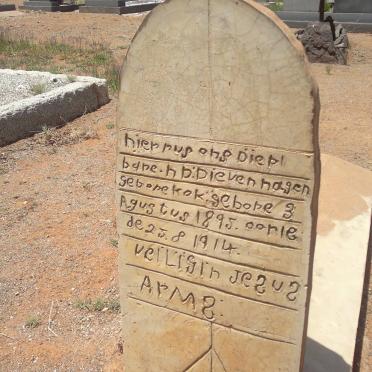 hier rus ons Diepl
bare. h b: Dievenhagen
geborekok: gebore 3
Agustus 1895. oorle
de 25. 8 1914.
veilig in Jesus
Arms: